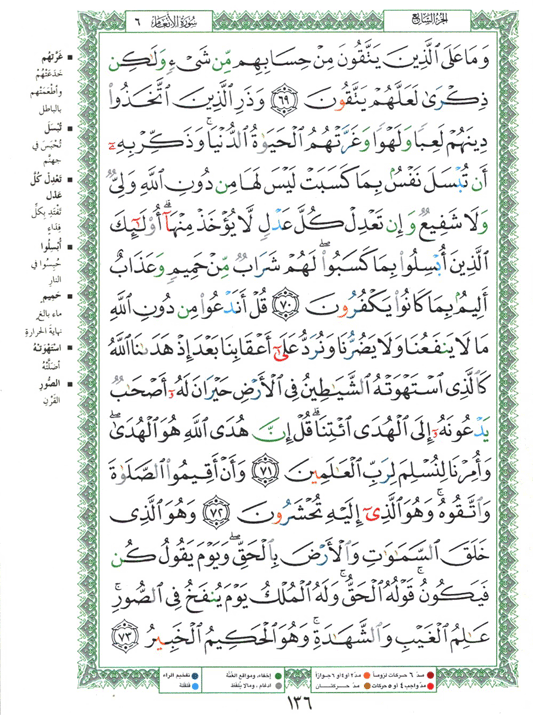 سُورَةُ الأَنْعَامِ ٦
الجُزْءُ السَّابِعُ
وَمَا عَلَى ٱلَّذِينَ يَتَّقُونَ مِنْ حِسَابِهِم مِّن شَىْءٍ وَلَٰكِن
ذِكْرَىٰ لَعَلَّهُمْ يَتَّقُونَ ٦٩ وَذَرِ ٱلَّذِينَ ٱتَّخَذُوا۟
دِينَهُمْ لَعِبًا وَلَهْوًا وَغَرَّتْهُمُ ٱلْحَيَوٰةُ ٱلدُّنْيَا ۚ وَذَكِّرْ بِهِۦٓ
أَن تُبْسَلَ نَفْسٌۢ بِمَا كَسَبَتْ لَيْسَ لَهَا مِن دُونِ ٱللَّهِ وَلِىٌّ
وَلَا شَفِيعٌ وَإِن تَعْدِلْ كُلَّ عَدْلٍ لَّا يُؤْخَذْ مِنْهَآ ۗ أُو۟لَٰٓئِكَ
ٱلَّذِينَ أُبْسِلُوا۟ بِمَا كَسَبُوا۟ ۖ لَهُمْ شَرَابٌ مِّنْ حَمِيمٍ وَعَذَابٌ
أَلِيمٌۢ بِمَا كَانُوا۟ يَكْفُرُونَ ٧٠ قُلْ أَنَدْعُوا۟ مِن دُونِ ٱللَّهِ
مَا لَا يَنفَعُنَا وَلَا يَضُرُّنَا وَنُرَدُّ عَلَىٰٓ أَعْقَابِنَا بَعْدَ إِذْ هَدَىٰنَا ٱللَّهُ
كَٱلَّذِى ٱسْتَهْوَتْهُ ٱلشَّيَٰطِينُ فِى ٱلْأَرْضِ حَيْرَانَ لَهُۥٓ أَصْحَٰبٌ
يَدْعُونَهُۥٓ إِلَى ٱلْهُدَى ٱئْتِنَا ۗ قُلْ إِنَّ هُدَى ٱللَّهِ هُوَ ٱلْهُدَىٰ ۖ
وَأُمِرْنَا لِنُسْلِمَ لِرَبِّ ٱلْعَٰلَمِينَ ٧١ وَأَنْ أَقِيمُوا۟ ٱلصَّلَوٰةَ
وَٱتَّقُوهُ ۚ وَهُوَ ٱلَّذِىٓ إِلَيْهِ تُحْشَرُونَ ٧٢ وَهُوَ ٱلَّذِى
خَلَقَ ٱلسَّمَٰوَٰتِ وَٱلْأَرْضَ بِٱلْحَقِّ ۖ وَيَوْمَ يَقُولُ كُن
فَيَكُونُ ۚ قَوْلُهُ ٱلْحَقُّ ۚ وَلَهُ ٱلْمُلْكُ يَوْمَ يُنفَخُ فِى ٱلصُّورِ ۚ
عَٰلِمُ ٱلْغَيْبِ وَٱلشَّهَٰدَةِ ۚ وَهُوَ ٱلْحَكِيمُ ٱلْخَبِيرُ ٧٣
غَرَّتْهُم
خَدَعَتْهُمْ
وأطمعتهم
بالباطل
تُبْسَلَ
تُحْبَسَ في
جهنّم
تَعْدِلْ كُلَّ
عَدْلٍ
تَفْتَدِ بكلِّ
فِداءٍ
أُبْسِلُوا
حُبِسُوا في
النار
حَمِيمٍ
ماء بالغ
نهاية الحرارة
اسْتَهْوَتْهُ
أضلّتْهُ
الصُّورِ
القَرْن
مدّ ٦ حركات لزوماً
مدّ ٢ أو ٤ أو ٦ جوازاً
إخفاء، ومواقع الغنّة
تفخيم الراء
مدّ واجب ٤ أو ٥ حركات
مدّ حركتان
إدغام، وما لا يُلفظ
قلقلة
١٣٦